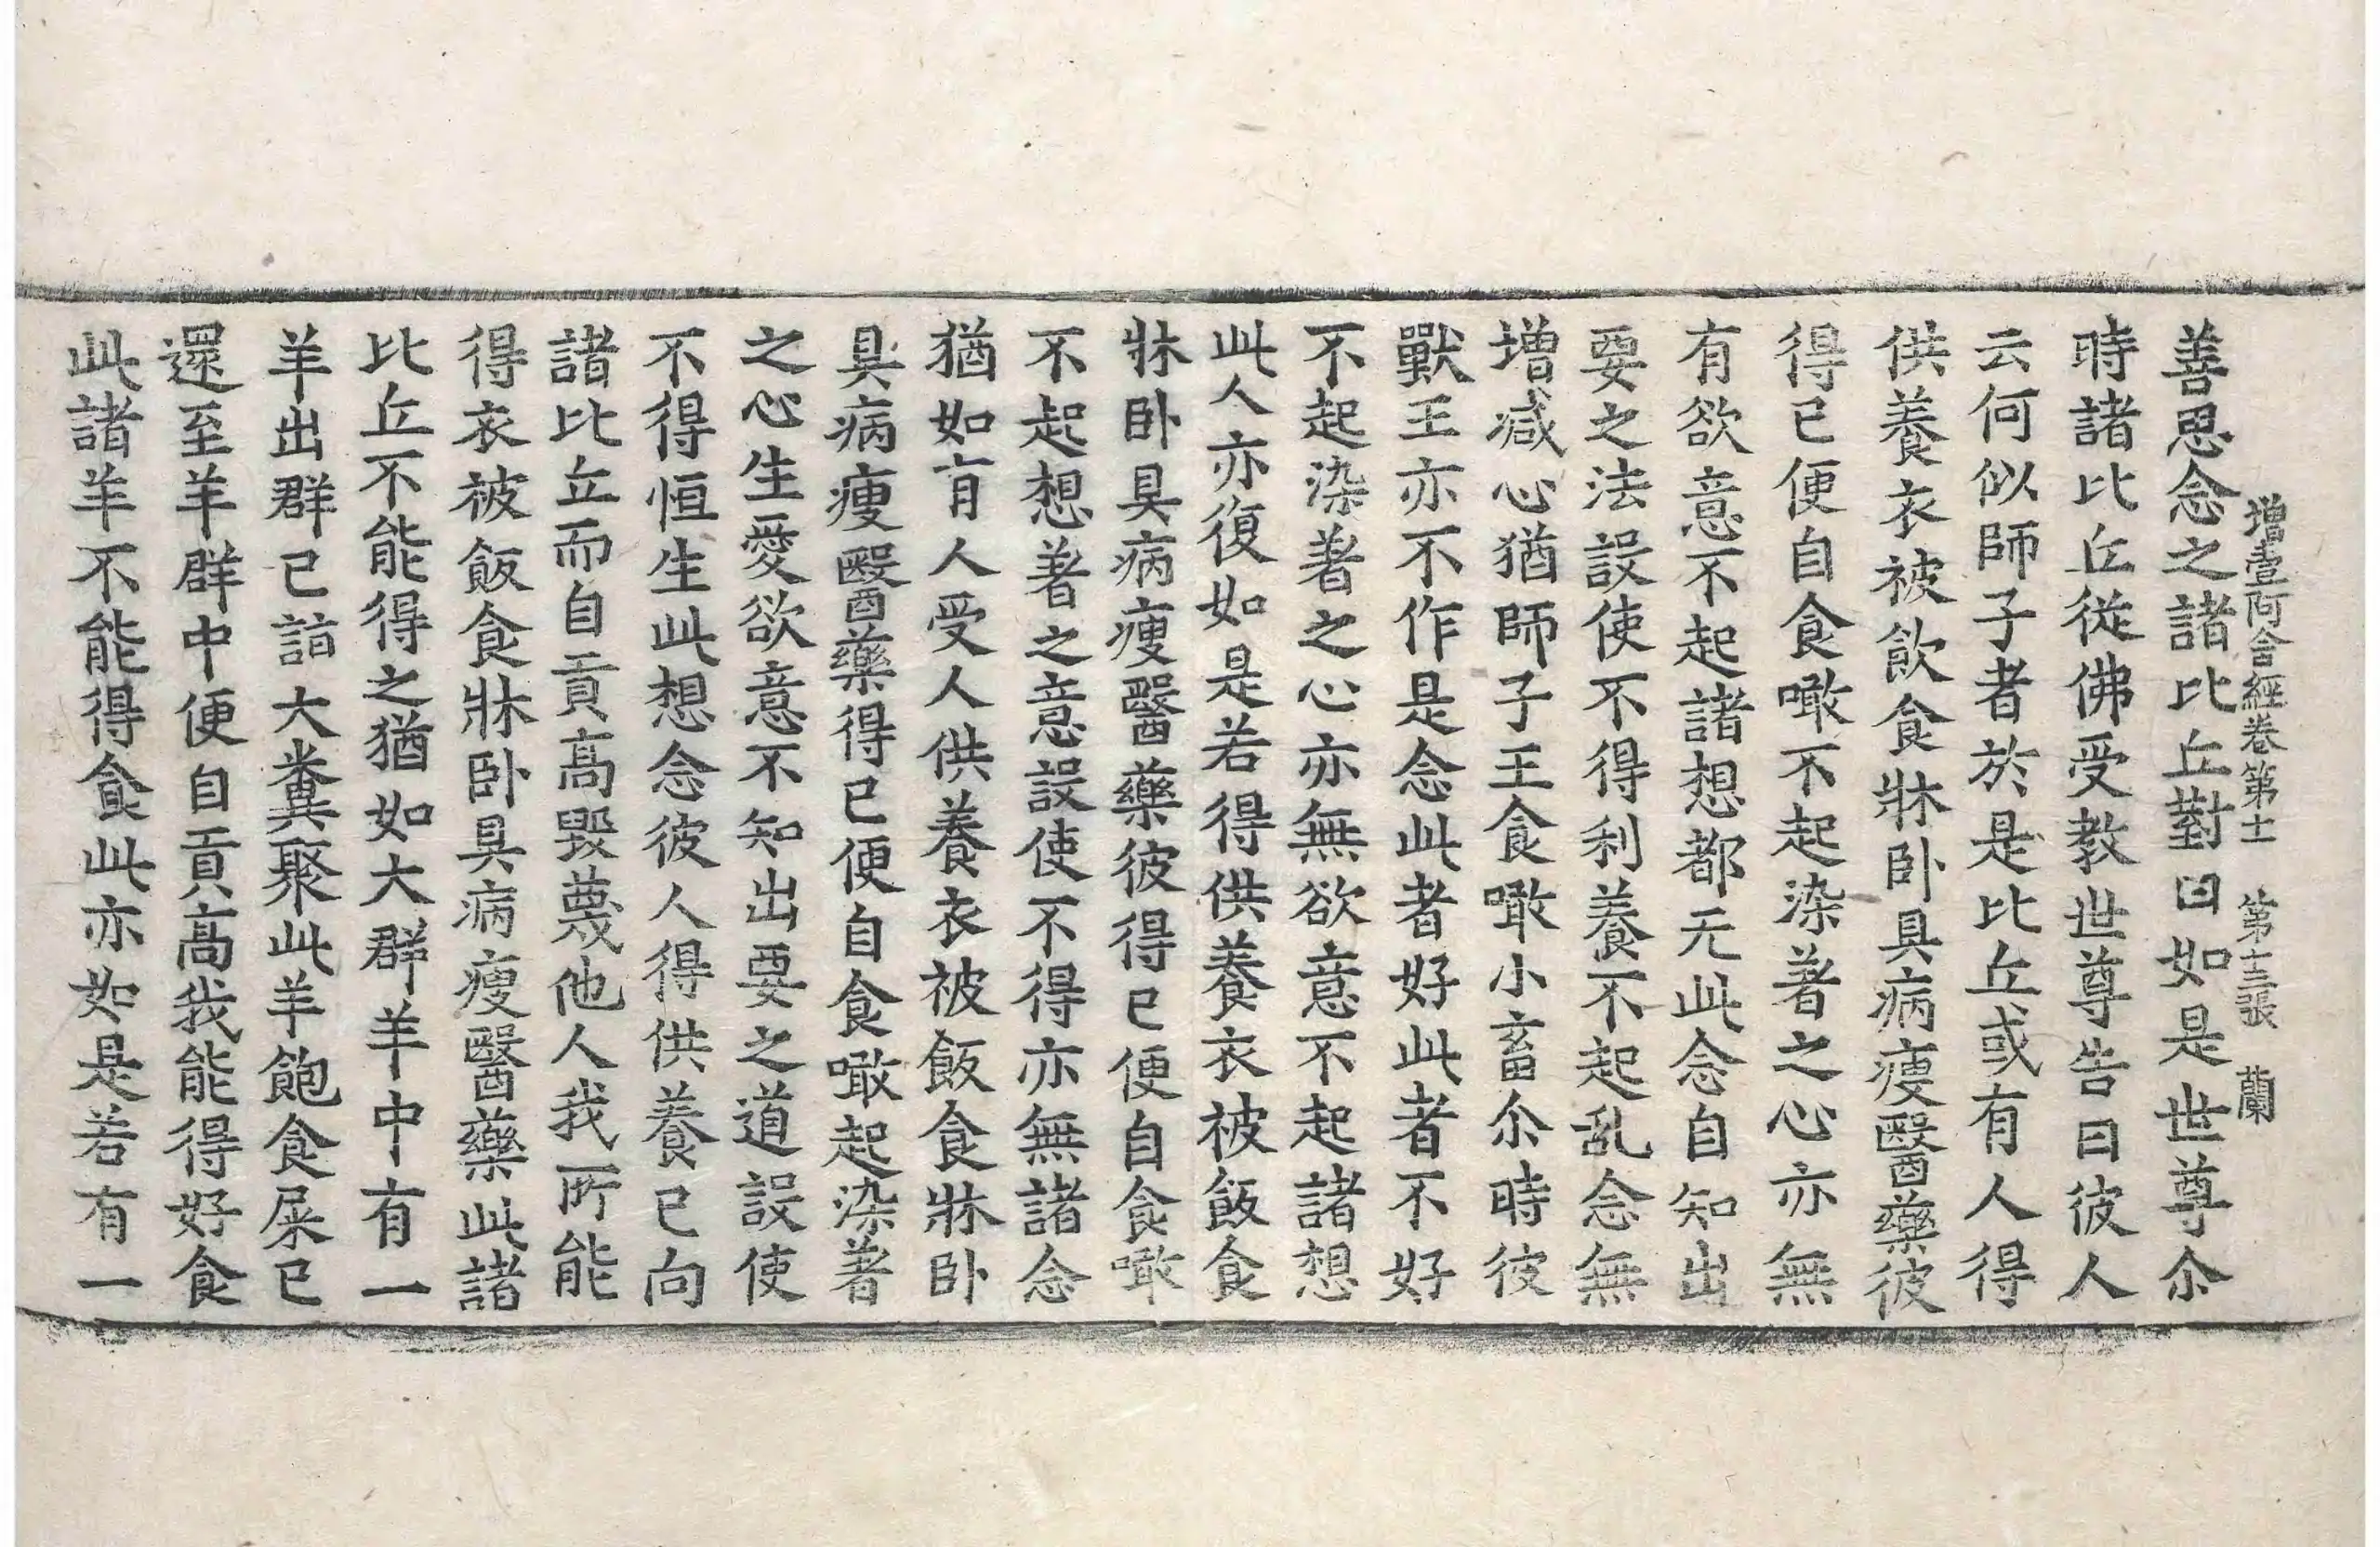 增壹阿含經卷第十一　第十三張　蘭
善思念之諸比丘對曰如是世尊尒
時諸比丘從佛受教世尊告曰彼人
云何似師子者於是比丘或有人得
供養衣被飲食牀卧具病瘦醫藥彼
得已便自食噉不起染著之心亦無
有欲意不起諸想都无此念自知出
要之法設使不得利養不起乱念無
增減心猶師子王食噉小畜尒時彼
獸王亦不作是念此者好此者不好
不起染著之心亦無欲意不起諸想
此人亦復如是若得供養衣被飯食
牀卧具病瘦醫藥彼得已便自食噉
不起想著之意設使不得亦無諸念
猶如有人受人供養衣被飯食牀卧
具病瘦醫藥得已便自食噉起染著
之心生愛欲意不知出要之道設使
不得恒生此想念彼人得供養已向
諸比丘而自貢高毀蔑他人我所能
得衣被飯食牀卧具病瘦醫藥此諸
比丘不能得之猶如大群羊中有一
羊出群已詣大糞聚此羊飽食屎已
還至羊群中便自貢高我能得好食
此諸羊不能得食此亦如是若有一